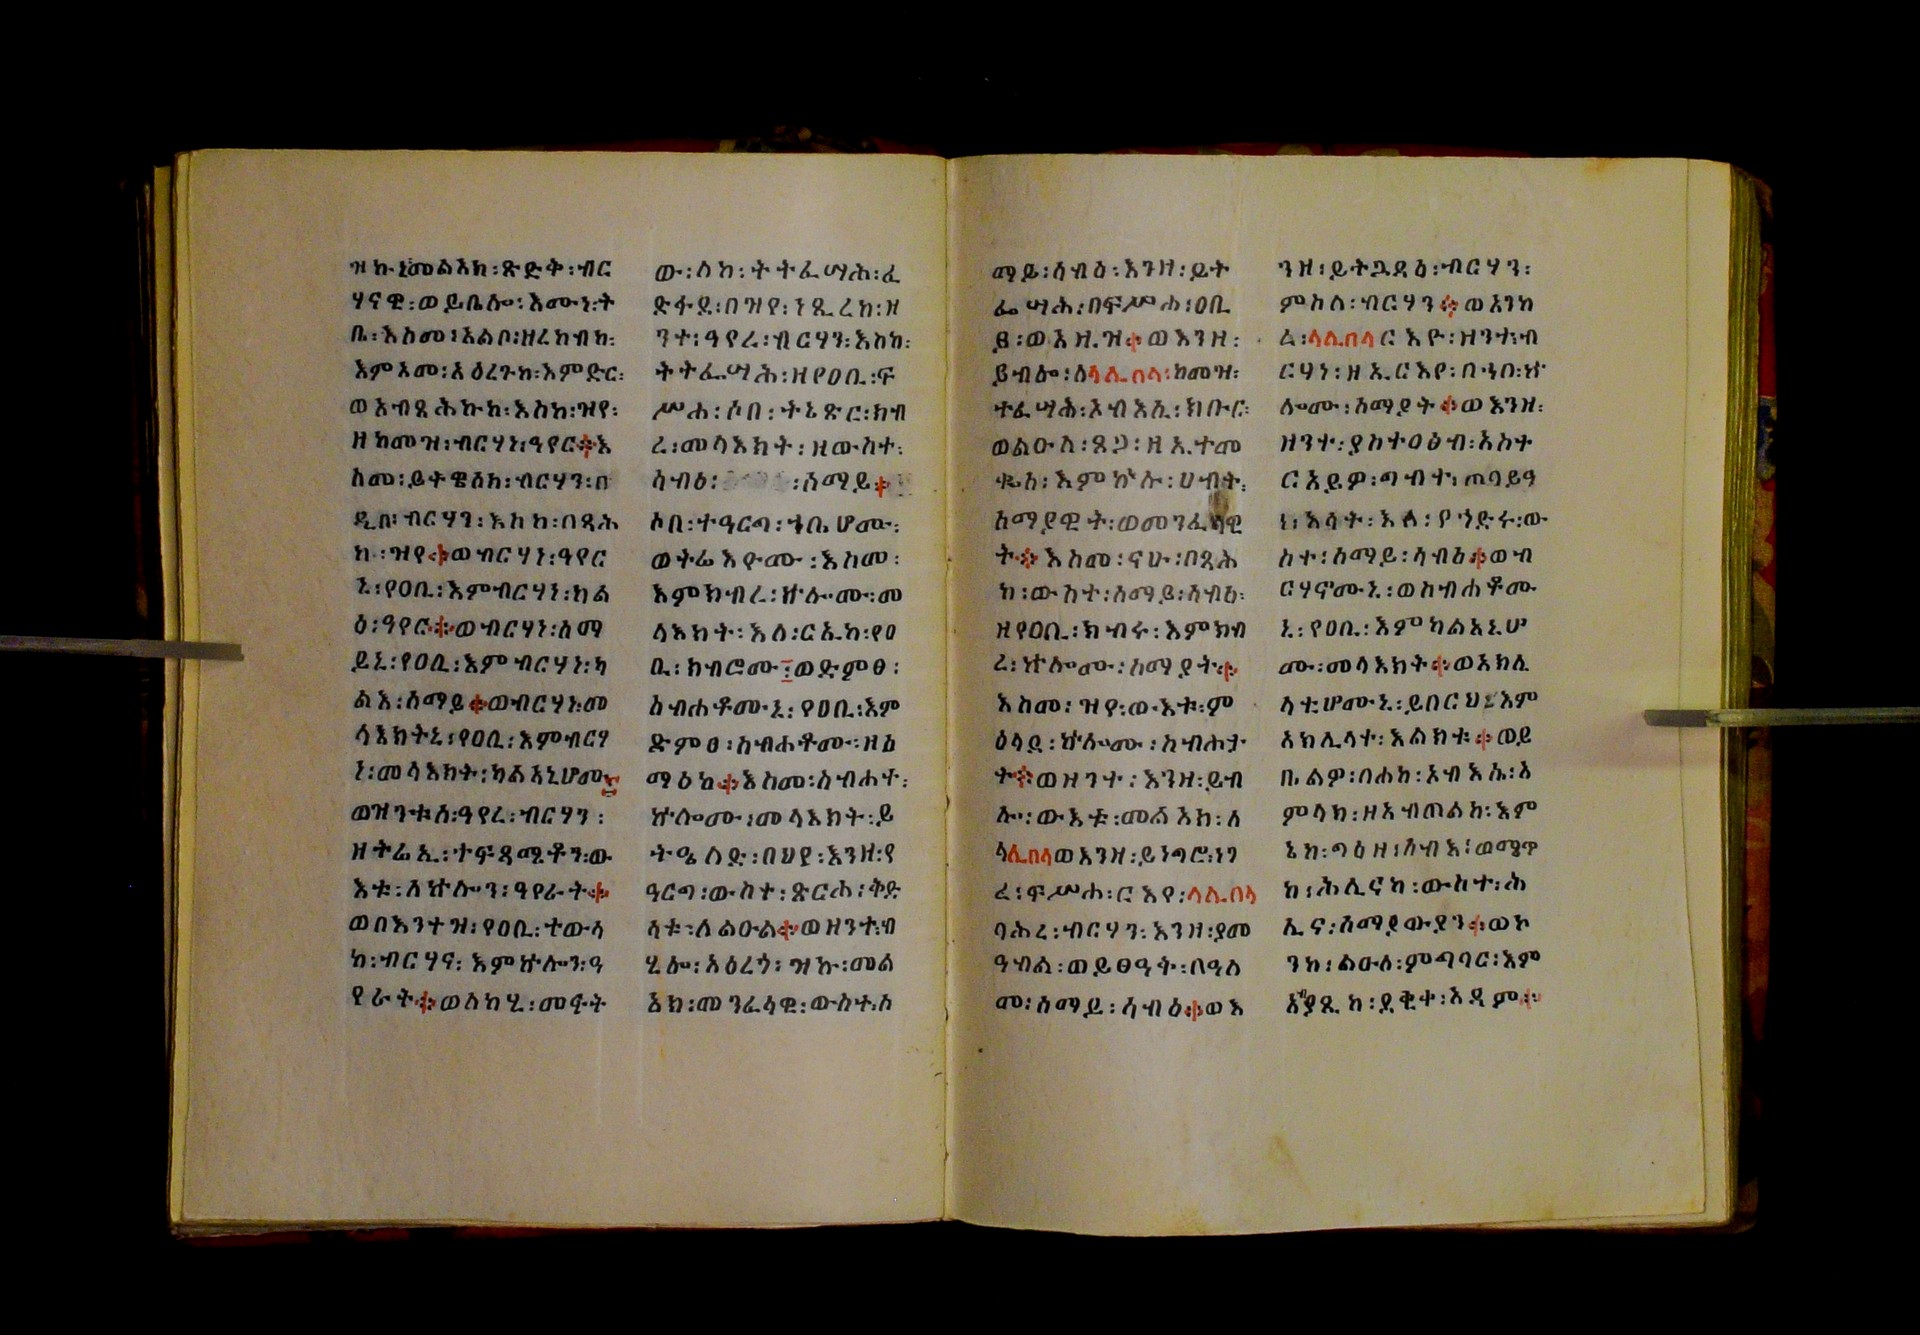 ዝኩኒ፡መልአክ፡ጽድቅ፡ብር
ሃናዊ፡ወይቤሎ፡እሙነ፡ት
ቤ፡እስመ፡አልቦ፡ዘረከብከ፡
እምአመ፡አዕረጉከ፡እምድር፡
ወአብጻሕኩከ፡እስከ፡ዝየ፡
ዘከመዝ፡ብርሃነ፡ዓየር፨እ
ስመ፡ይትዌሰክ፡ብርሃን፡በ
ዲበ፡ብርሃን፡እስከ፡በጻሕ
ከ፡ዝየ፨ወብርሃነ፡ዓየር
ኒ፡የዐቢ፡እምብርሃነ፡ካል
ዕ፡ዓየር፨ወብርሃነ፡ሰማ
ይኒ፡የዐቢ፡እምብርሃነ፡ካ
ልእ፡ሰማይ፨ወብርሃነ፡መ
ላእክትኒ፡የዐቢ፡እምብርሃ
ነ፡መላእክት፡ካልኣኒሆሙ፨
ወዝንቱሰ፡ዓየረ፡ብርሃን፡
ዘትሬኢ፡ተፍጻሜቶን፡ው
እቱ፡ለኵሎን፡ዓየራት፨
ወበእንተዝ፡የዐቢ፡ተውሳ
ከ፡ብርሃና፡እምኵሎን፡ዓ
የራት፨ወሰከሂ፡መፍት
ው፡ሰከ፡ትትፈሣሕ፡ፈ
ድፋደ፡በዝየ፡ነጺረከ፡ዘ
ንተ፡ዓየረ፡ብርሃን፡እስከ፡
ትትፌሣሕ፡ዘየዐቢ፡ፍ
ሥሐ፡ሶበ፡ትኔጽር፡ክብ
ረ፡መላእክት፡ዘውስተ፡
ሳብዕ፡ ፡ሰማይ፨
ሶበ፡ተዓርግ፡ኀቤሆሙ፡
ወትሬእዮሙ፡እስመ፡
እምክብረ፡ኵሎሙ፡መ
ላእክት፡እለ፡ርኢከ፡የዐ
ቢ፡ክብሮሙ፡ወድምፀ፡
ስብሐቶሙኒ፡የዐቢ፡እም
ድምፀ፡ስብሐቶሙ፡ዘሰ
ማዕከ፨እስመ፡ስብሐተ፡
ኵሎሙ፡መላእክት፡ይ
ትዌሰድ፡በህየ፡እንዘ፡የ
ዓርግ፡ውስተ፡ጽርሐ፡ቅድ
ሳቱ፡ለልዑል፨ወዘንተ፡ብ
ሂሎ፡አዕረጎ፡ዝኩ፡መል
አክ፡መንፈሳዊ፡ውስተ፡ሰ
ማይ፡ሳብዕ፡እንዘ፡ይት
ፌሣሕ፡በፍሥሐ፡ዐቢ
ይ፡ወእዘዝ፨ወእንዘ፡
ይብሎ፡ለላሊበላ፡ከመዝ፡
ተፈሣሕ፡ኦብእሲ፡ክቡር፡
ወልዑለ፡ጸጋ፡ዘኢተመ
ዴስ፡እምኵሉ፡ሀብት፡
ሰማያዊት፡ወመንፈሳዊ
ት፨እስመ፡ናሁ፡በጻሕ
ከ፡ውስተ፡ሰማይ፡ሳብዕ፡
ዘየዐቢ፡ክብሩ፡እምክብ
ረ፡ኵሎሙ፡ሰማያት፨
እስመ፡ዝየ፡ውእቱ፡ም
ዕላደ፡ኵሎሙ፡ስብሐታ
ት፨ወዘንተ፡እንዘ፡ይብ
ሎ፡ውእቱ፡መልአክ፡ለ
ላሊበላወእንዘ፡ይነግሮ፡ነገ
ረ፡ፍሥሐ፡ርእየ፡ላሊበላ
ባሕረ፡ብርሃን፡እንዘ፡ያመ
ዓብል፡ወይፀዓት፡በዓሰ
መ፡ሰማይ፡ሳብዕ፨ወእ
ንዘ፡ይትጓዳዕ፡ብርሃን፡
ምስለ፡ብርሃን፨ወእንከ
ረ፡ላሊበላርእዮ፡ዘንተ፡ብ
ርሃነ፡ዘኢርእየ፡በኀበ፡ኵ
ሎሙ፡ሰማያት፨ወእንዘ፡
ዘንተ፡ያስተዐፅብ፡አስተ
ርአይዎ፡ግብተ፡ጠባይዓ
ነ፡እሳት፡እለ፡የኀድሩ፡ው
ስተ፡ሰማይ፡ሳብዕ፨ወብ
ርሃኖሙኒ፡ወስብሐቶሙ
ኒ፡የዐቢ፡እምካልአኒሆ
ሙ፡መላእክት፨ወአክሊ
ላቲሆሙኒ፡ይበርህ፡እም
አክሊላተ፡እልክቱ፨ወይ
ቤልዎ፡በሐከ፡ኦብእሴ፡አ
ምላክ፡ዘአብጠልከ፡እም
ኔከ፡ግዕዘ፡ሰብእ፡ወሜጥ
ከ፡ሕሊናከ፡ውስተ፡ሕ
ሊና፡ሰማያውያን፨ወኮ
ንከ፡ልዑለ፡ምግባር፡እም
አያጺከ፡ደቂቀ፡አዳም፨